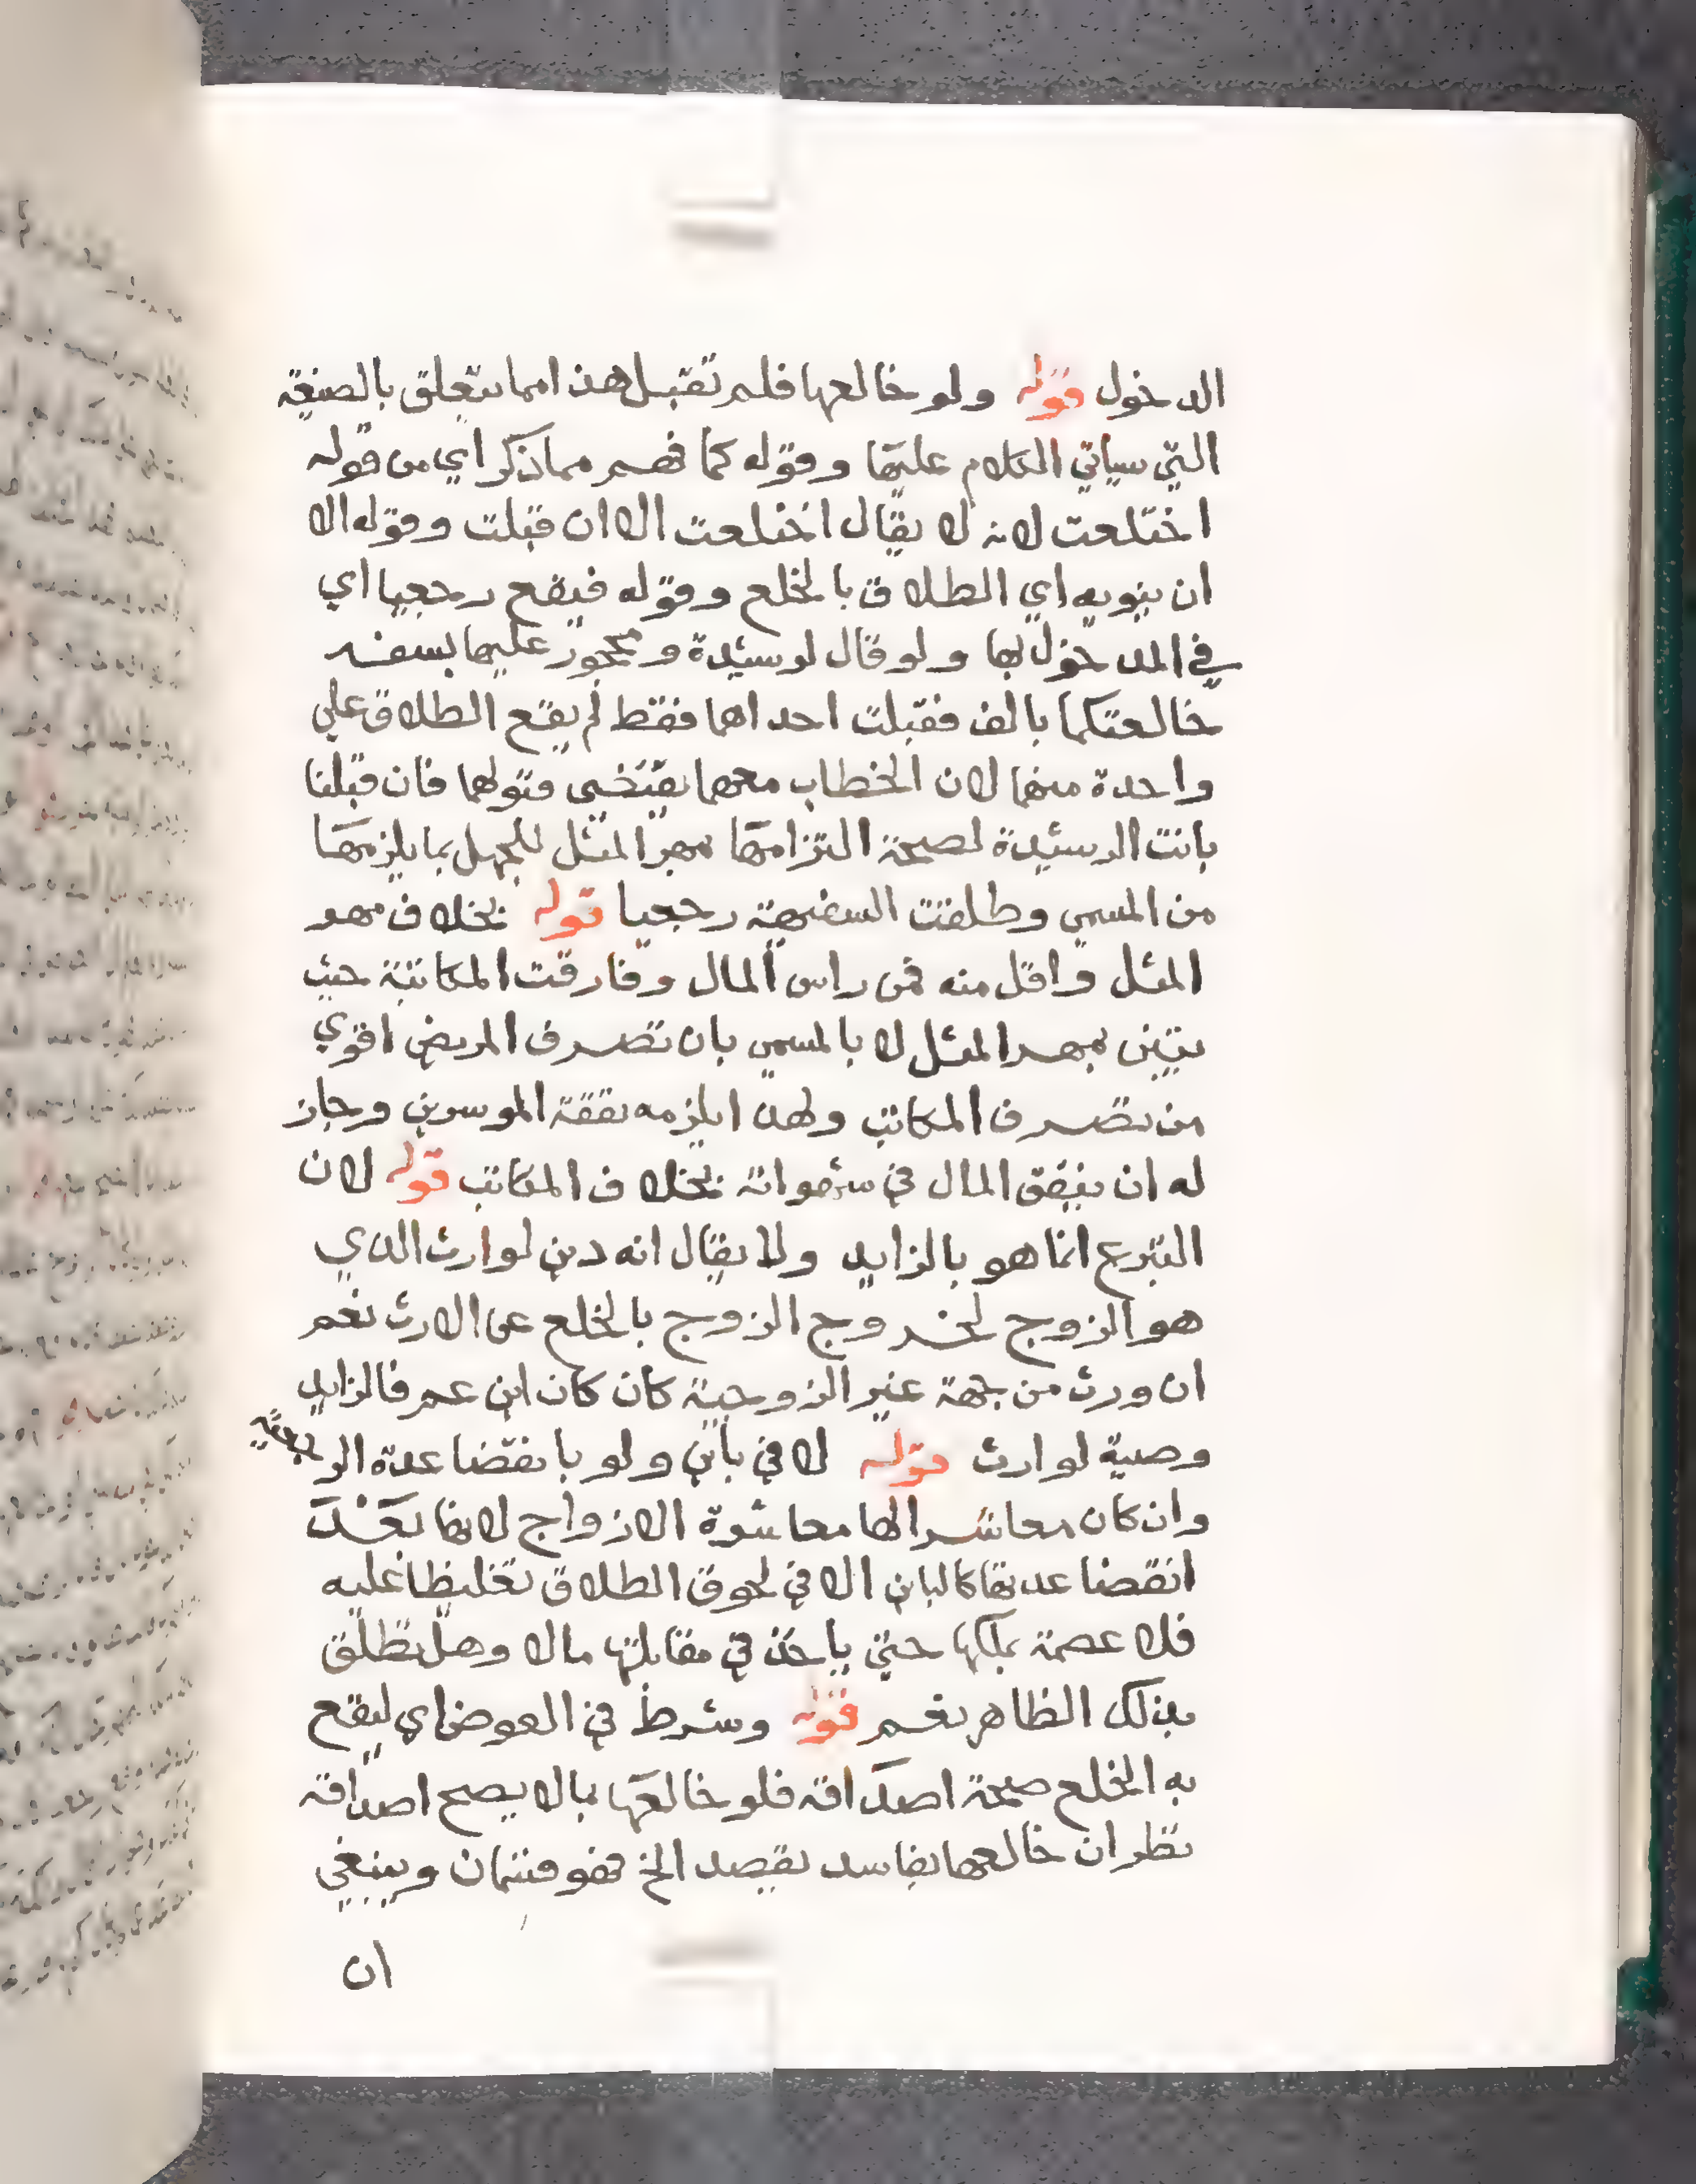 الدخول قوله ولو خالعها فلم تقبل هذا مما يتعلق بالصيغة
التي سياتي الكلام عليها وقوله كما فهم مما ذكر اي من قوله
اختلعت لانه لا يقال اختلعت الا ان قبلت وقوله الا
ان ينويه اي الطلاق بالخلع وقوله فيقع رجعيا اي
في المدخول بها ولو قال لرشيدة ومحجور عليها بسفه
خالعتكما بالف فقبلت احداهما فقط لم يقع الطلاق علي
واحدة منهما لان الخطاب معهما يقتضي قبولهما فان قبلتا
بانت الرشيدة لصحة التزامها مهر المثل للجهل بما يلزمها
من المسمي وطلقت السفيهة رجعيا قوله بخلاف مهر
المثل واقل منه فمن راس المال وفارقت المكاتبة حيث
تبين بمهر المثل لا بالمسمي بان تصرف المريض اقوي
من تصرف المكاتب ولهذا يلزمه نفقة الموسرين وجاز
له ان ينفق المال في شهواته بخلاف المكاتب قوله لان
التبرع انما هو بالزايد ولا يقال انه دين لوارث الذي
هو الزوج لخروج الزوج بالخلع عن الارث نعم
ان ورث من جهة غير الزوجية كان كان ابن عم فالزايد
وصية لوارث قوله لا في باين ولو بانقضا عدة الرجعية
وان كان معاشرا لها معاشرة الازواج لانها بعد
انقضا عدتها كالباين الا في لحوق الطلاق تغليظا عليه
فلا عصمة يملكها حتي ياخذ في مقابلتها مالا وهل تطلق
بذلك الظاهر نعم قوله وشرط في العوض اي ليقع
به الخلع صحة اصداقه فلو خالعها بما لا يصح اصداقه
نظر ان خالعها بفاسد يقصد الخ فهو قسمان وينبغي
ان